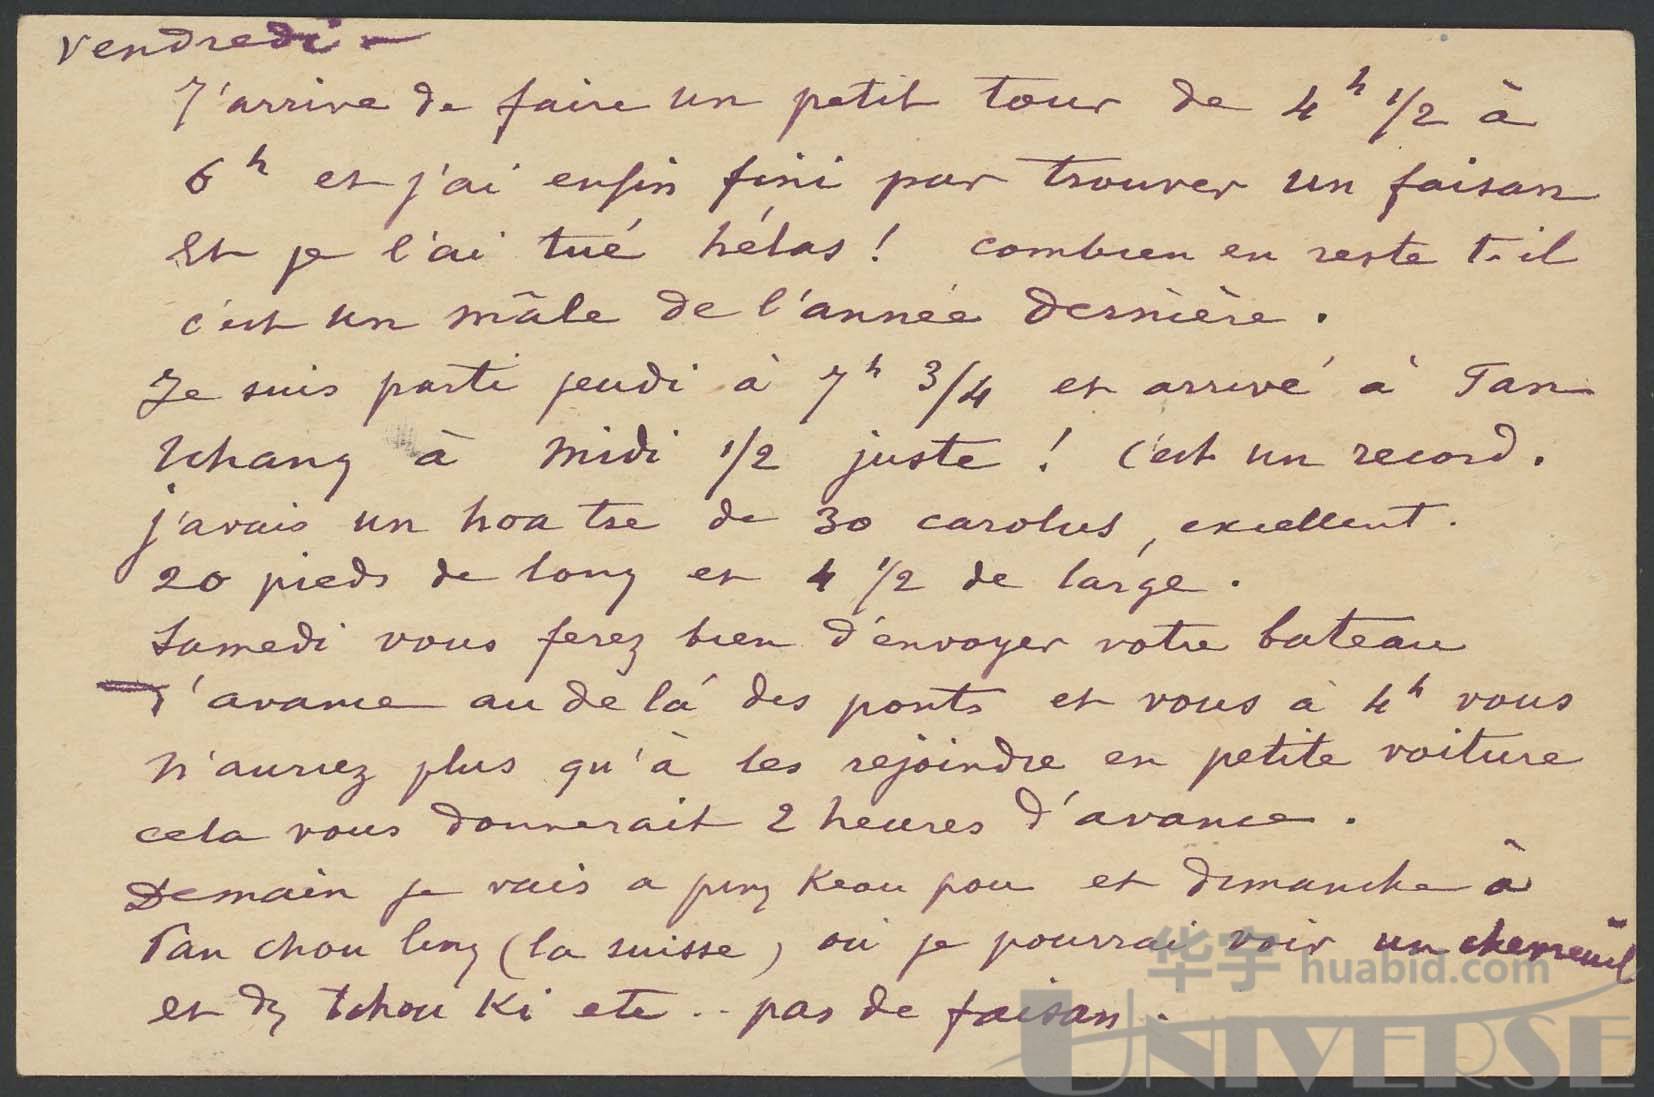 vendredi -
J'arrive de faire un petit tour de 4 h 1/2 à
6 h et j'ai enfin fini par trouver un faisan
Et je l'ai tué hélas ! combien en reste t-il
c'est un mâle de l'année dernière.
Je suis parti jeudi à 7 h 3/4 et arrivé à Tan
tchang à midi 1/2 juste ! c'est un record.
j'avais un hoa tse de 30 carolus, excellent.
20 pieds de long et 4 1/2 de large.
Samedi vous ferez bien d'envoyer votre bateau
d'avance au delà des ponts et vous à 4 h vous
n'auriez plus qu'à les rejoindre en petite voiture
cela vous donnerait 2 heures d'avance.
Demain je vais a Keou pou et dimanche à
Tan chou ling (la suisse) où je pourrai voir un chevreuil
et tchou Ki etc .. pas de faisan.
华宇 huabid.com
UNIVERSE